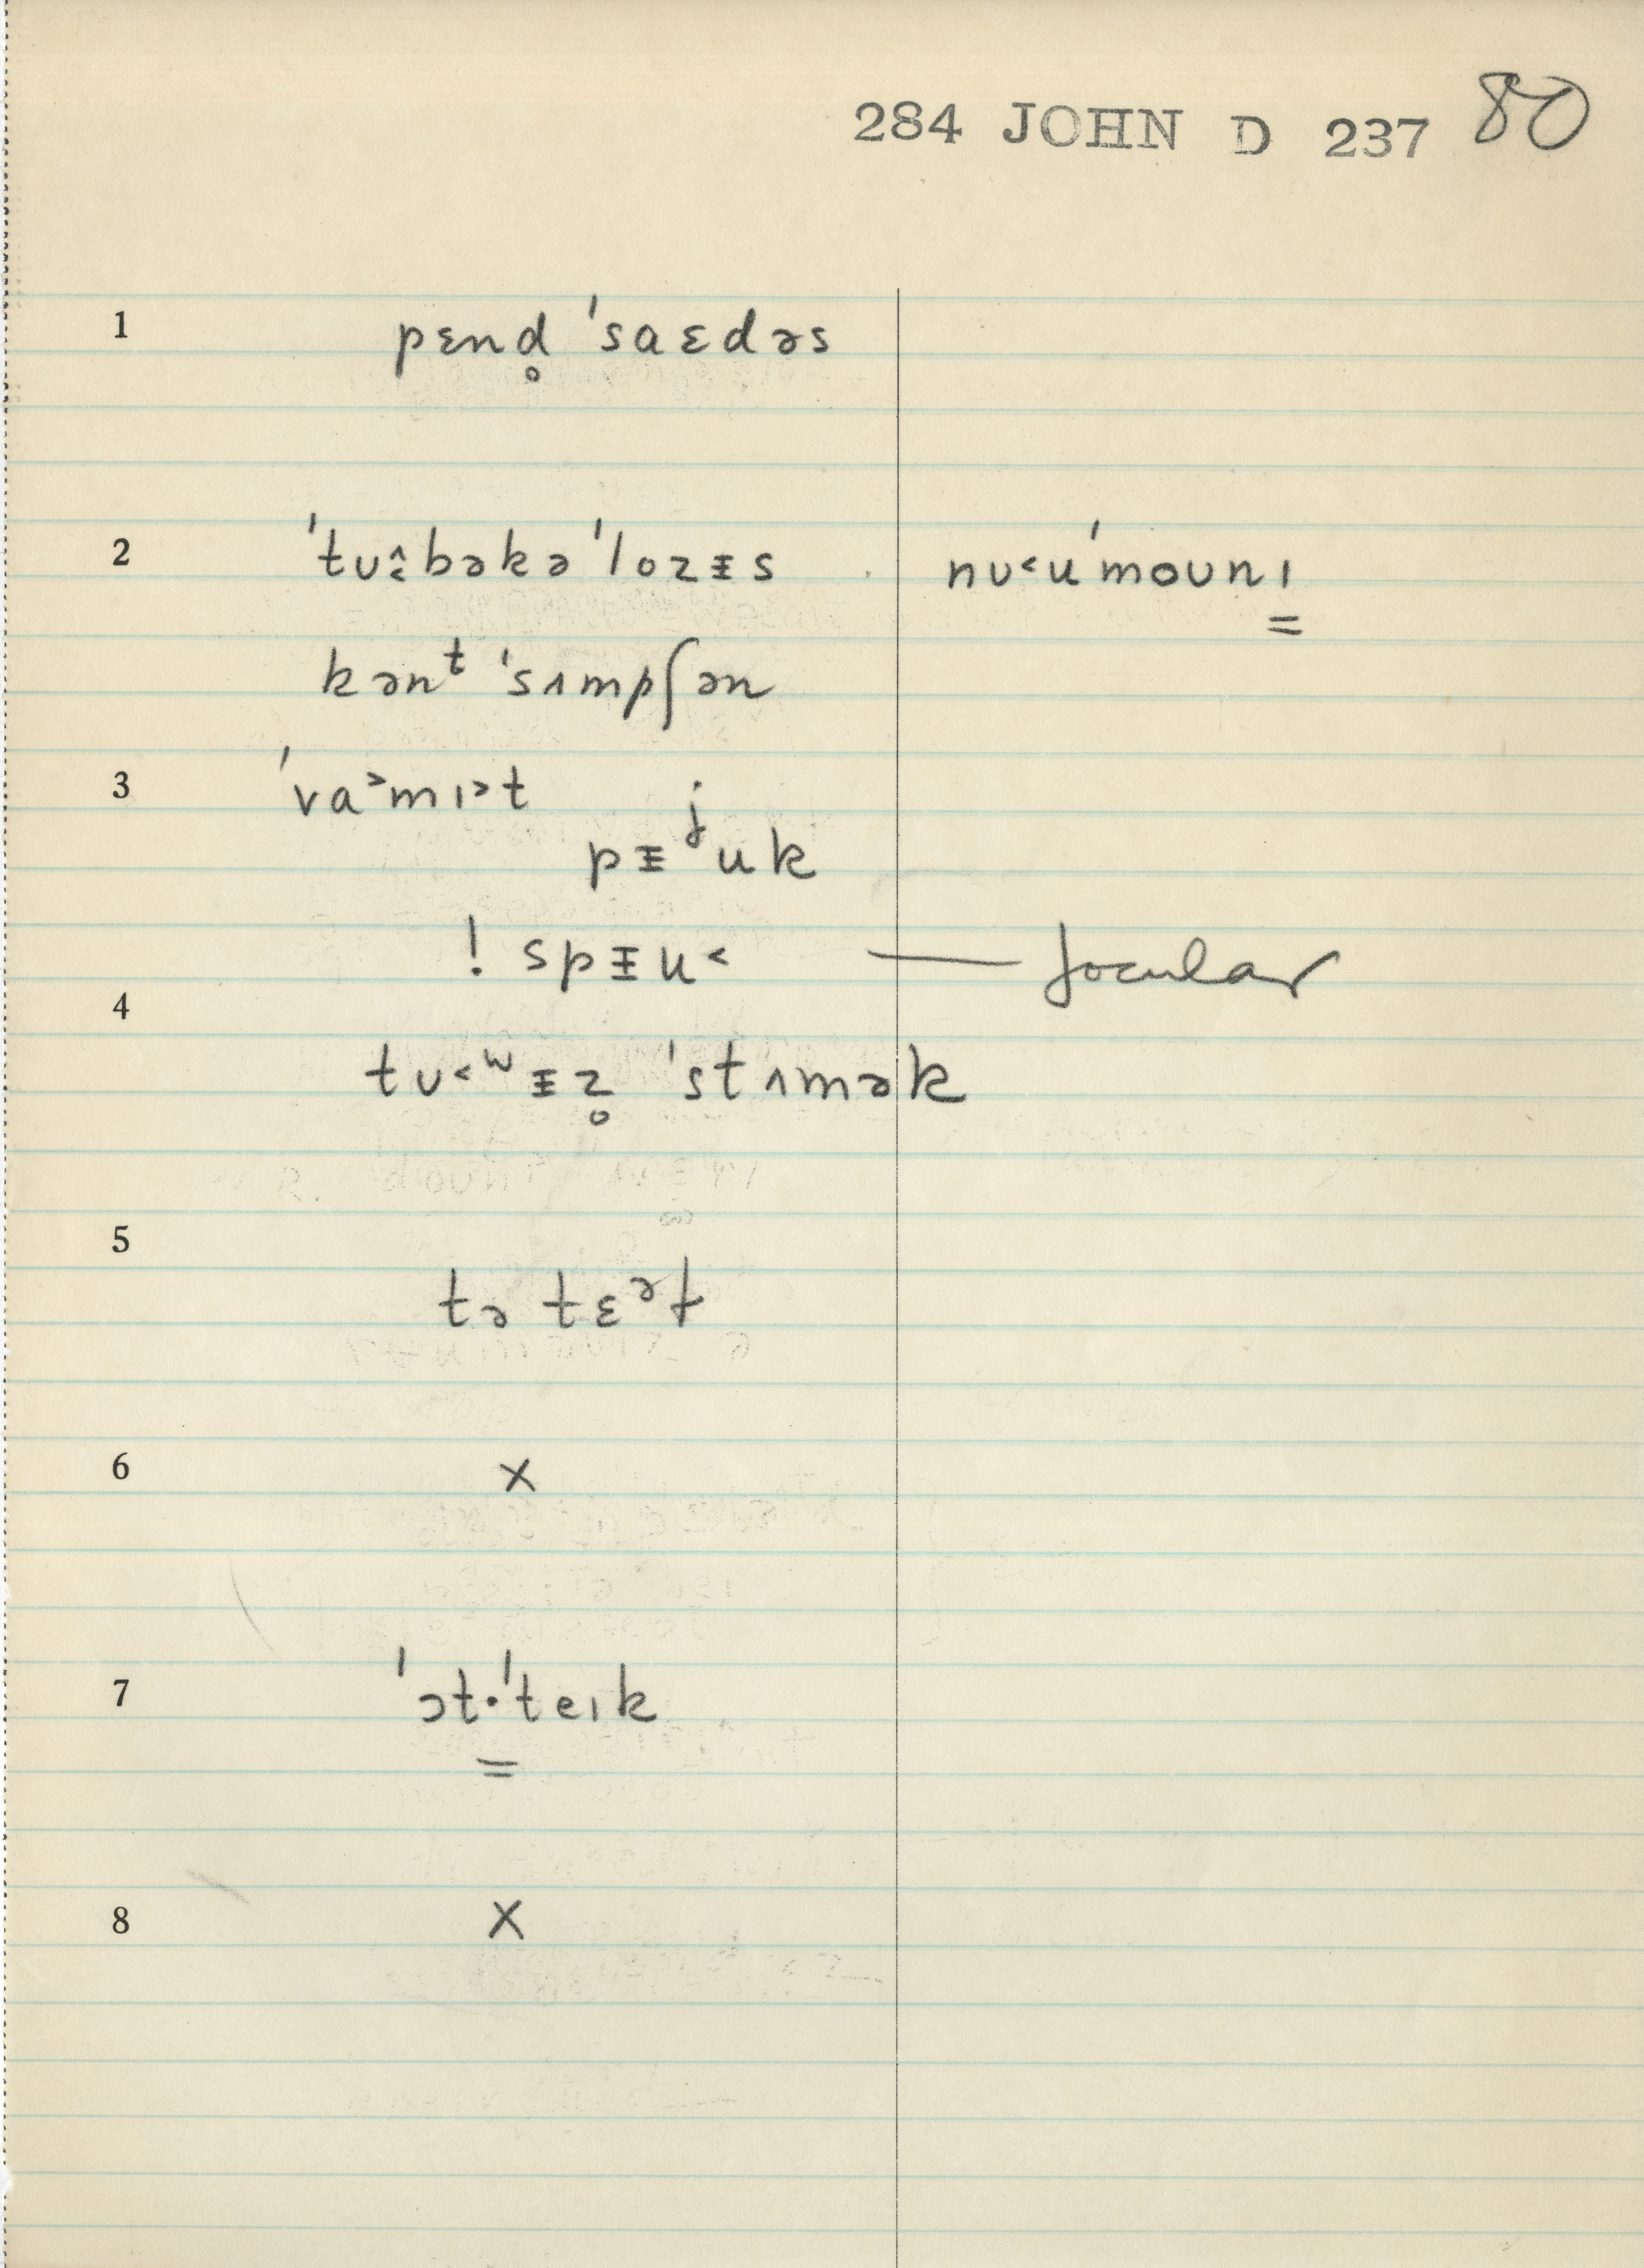 284 JOHN D 237 80
1 pɛnd̥ ˈsaɛdəs
2 ˈtʊ˂̂bəkəˈlozᵻs nʊ˂uˈmoʊnɪ̳
kənᵗ ˈsʌmpʃən
3 ˈva˃mɪ˃t
pᵻʲuk
! spᵻu˂ — Jocular
4
tʊ˂ʷᵻz̥ ˈstʌmək
5
tə tɛᵊt
6 x
7 ˈɔt·ˈteɪk
=
8 x